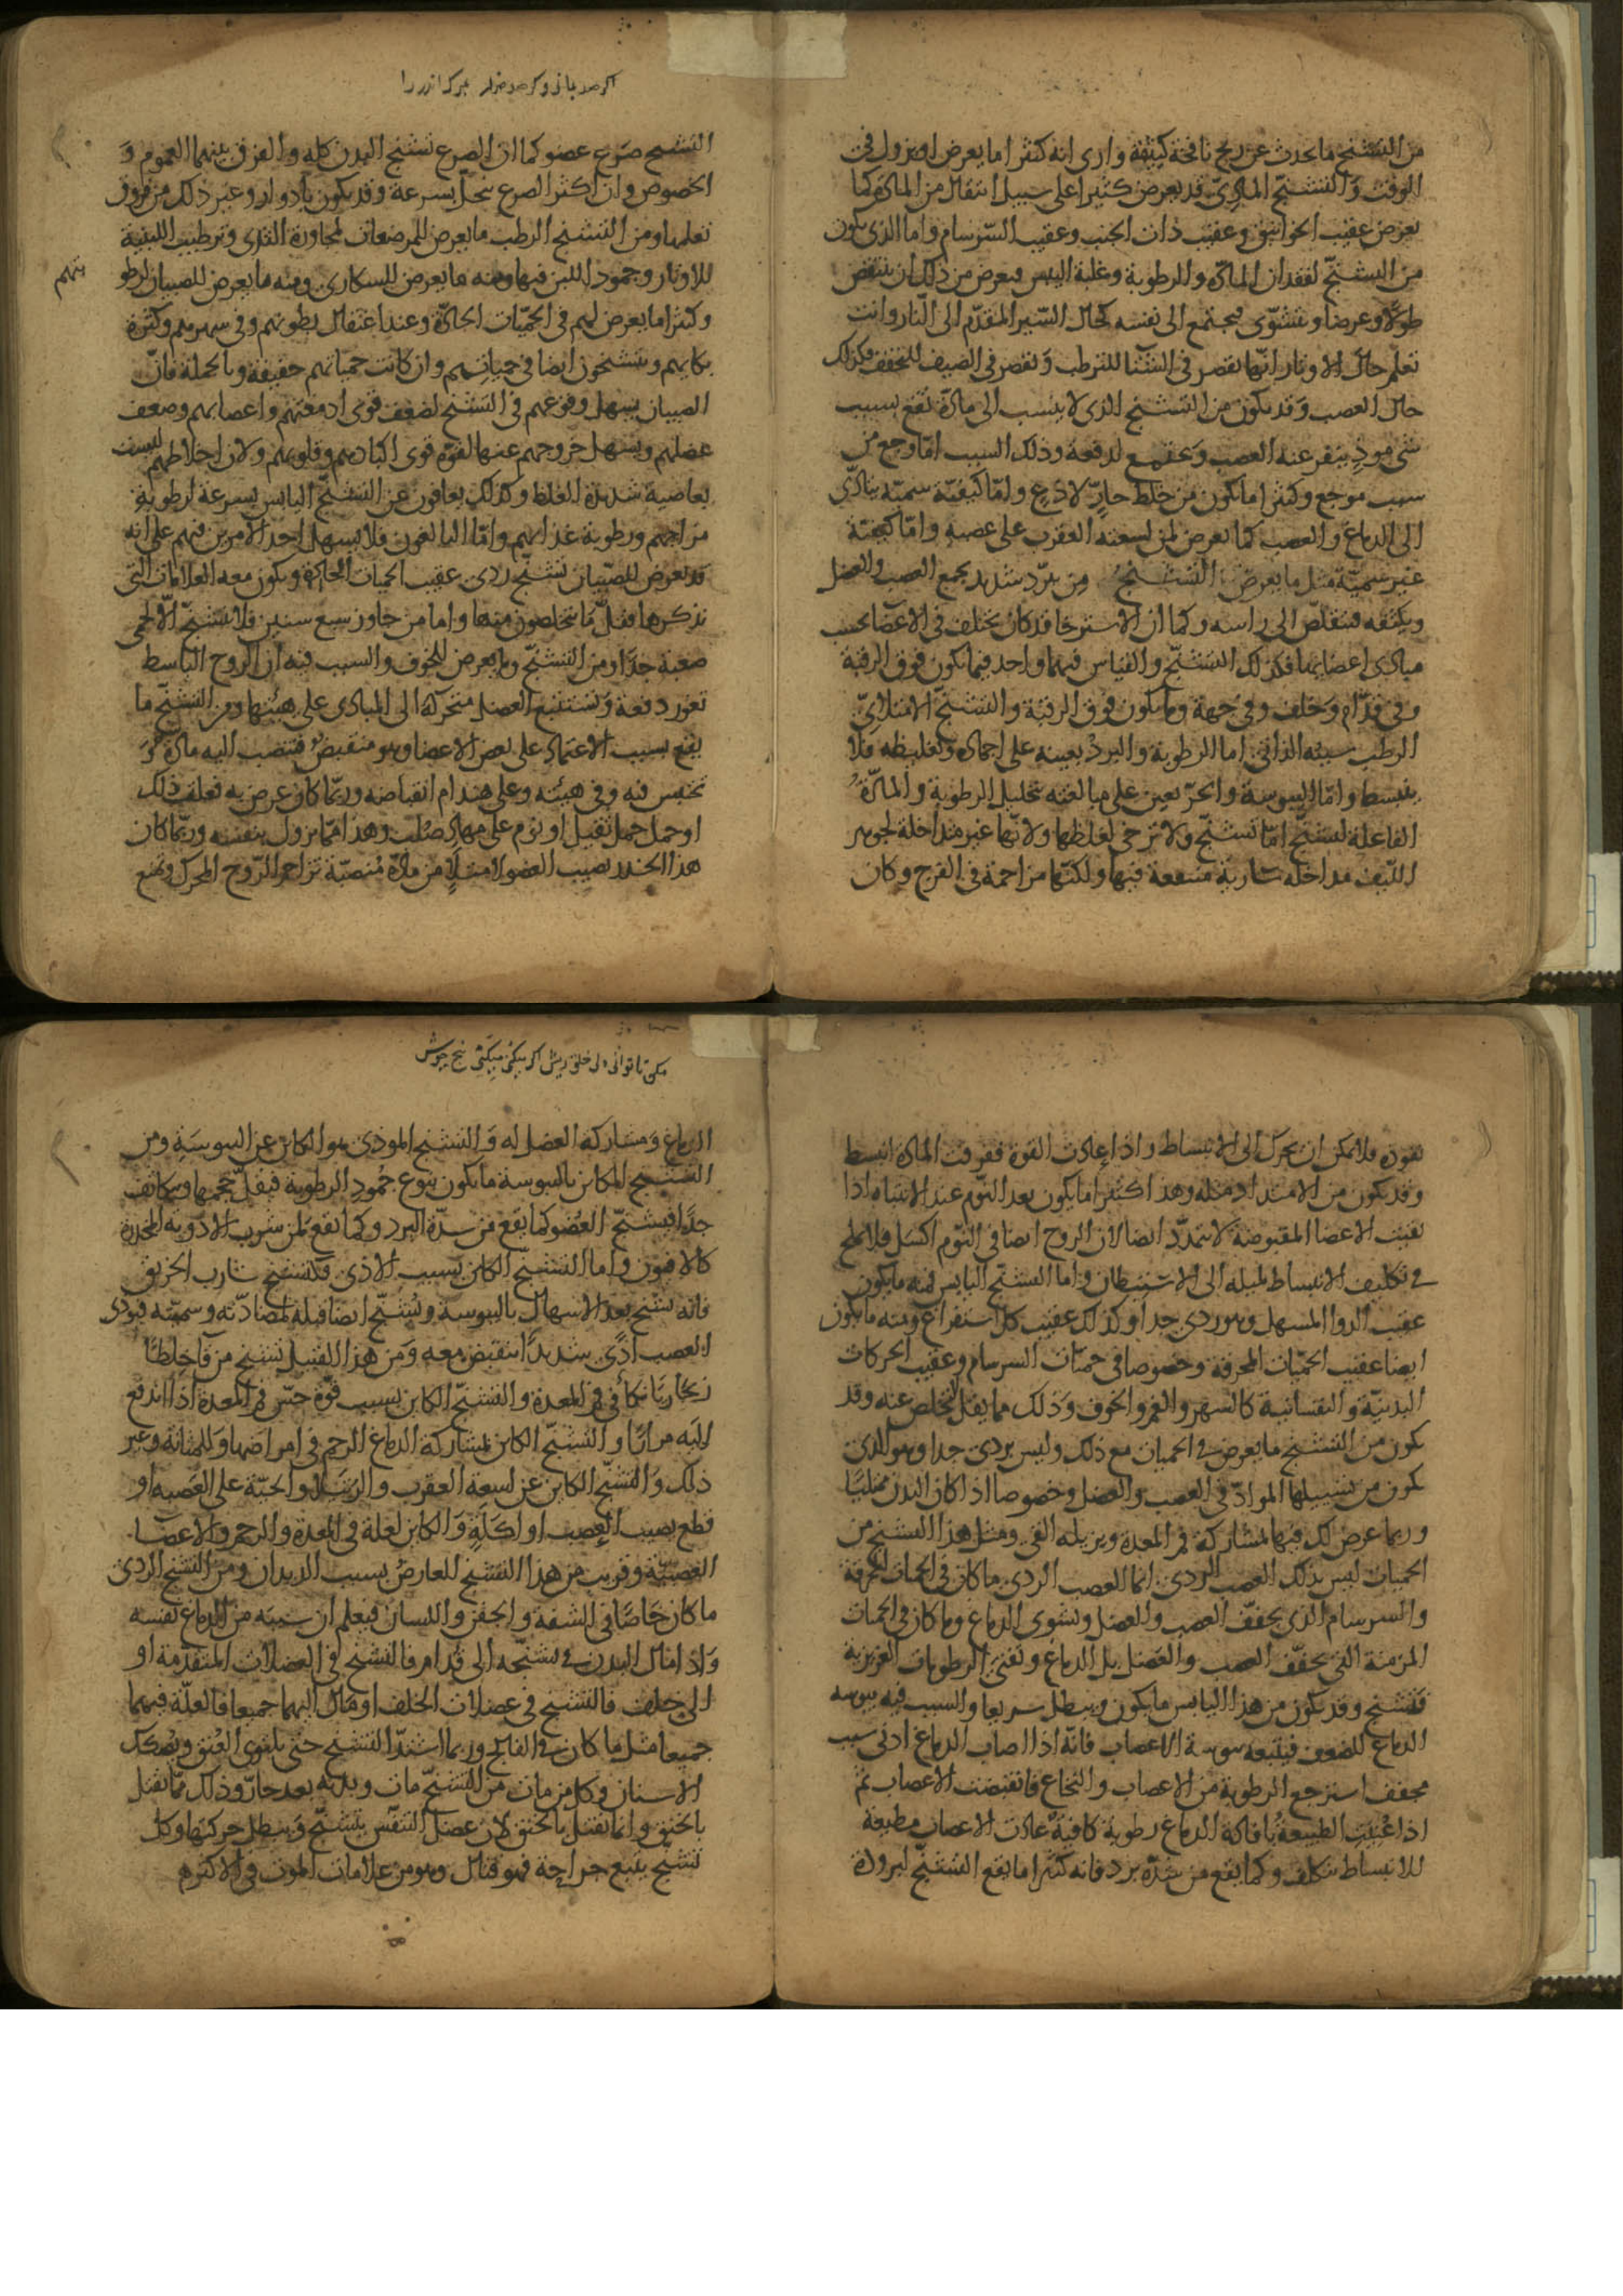 من التشنج ما يحدث عن ريح نافخة كثيفة وارى انه كثيرا ما يعرض او يزول فى
الوقت وَالتشنّج المادىّ قد يعرض كثيرا على سبيل انتقال من المادة كما
يعرض عقيب الخوانيق وعقيب ذات الجنب وعقيب السّرسام واما الذى يكون
من التشنّج لفقدان المادّة والرطوبة وغلبة اليبس فيعرض من ذلك ان ينتقص
طولاً وعرضا وتشوّى فيجتمع الى نفسه كحال السّير المقدّم الى النّار وانت
تعلم حال الاوتار انّها تقصر فى الشتا للترطب وَتقصر فى الصيف للتجفف فكذلك
حال العصب وَقد يكون من التشنج الذى لا ينسب الى مادّة تقع بسبب
شى موذٍ ينفر عنه العصب وَيجتمع لدفعه وذلك السبب امّا وجع من
سبب موجع وكثيرا ما يكون من خلط حارّ لاذع وامّا كيفيّة سميّة يتادّى
الى الدماغ والعصب كما يعرض لمن لسعته العقرب على عصبه وامّا كيفيّة
غير سميّة مثل ما يعرض التشنج من برد شديد يجمع العصب والعضل
ويكثفه فيتقلّص الى راسه وكما ان الاسترخا قد كان يختلف فى الاعضا بحسب
مبادى اعصابها فكذلك التشنّج والقياس فيهما واحد فيما يكون فوق الرقبة
وفى قدّام وَخلف وفى جهة وما يكون فوق الرقبة والتشنج الامتلائىّ
الرطب سببه الذاتى اما الرطوبة والبردُ يعينه على اجماده وتغليظه فلا
ينبسط وامّا اليبوسة والحرّ يعين على مبالغته بتحليل الرطوبة والمادّةُ
الفاعلة لتشنّج امّا تشنّج ولا ترخى لغلظها ولانّها غير مداخلة لجوهر
اللّيف مداخلة سارية منتقعة فيها ولكنّها مزاحمة فى الفرج وكان
اكر صد بانى
التشنج صَرع عضو كما ان الصرع تشنج البدن كله والفرق بينهما العموم وَ
الخصوص وان اكثر الصرع ينحلّ بسرعة وقد يكون بادوار وغير ذلك من فروق
تعلمها ومن التشنج الرطب ما يعرض للمرضعات لمجاورة الثدى وترطيب اللبنية
للاوتار وجمود اللبن فيها ومنه ما يعرض للسكارى ومنه ما يعرض للصبيان لرطو
بتهم
وكثيرا ما يعرض لهم فى الحمّيات الحادّة وعند اعتقال بطونهم وفى سهرهم وكثرة
بكايهم ويتشنجون ايضا فى حمياتهم وان كانت حمياتهم خفيفة وبالجملة فانّ
الصبيان يسهل وقوعهم فى التشنج لضعف قوى ادمغتهم واعصابهم وضعف
عضلهم ويسهل خروجهم عنها لقوة قوى اكبادهم وقلوبهم ولان اخلاطهم ليست
بعاصية شديدة الغلظ وكذلك يعافون عن التشنّج اليابس بسرعة لرطوبة
مزاجهم ورطوبة غذائهم وامّا البالغون فلا يسهل احد الامرين فيهم على انه
قد يعرض للصّبيان تشنّج ردى عقيب الحميات الحادة ويكون معه العلامات التى
نذكرها فقلّ ما يتخلصون منها واما من جاوز سبع سنين فلا يتشنج الّا لحمى
صعبة جدّا ومن التشنّج ما يعرض للخوف والسبب فيه ان الروح الباسط
تغور دفعة وَتستتبع العضل متحركة الى المبادى على هيئتها ومن التشنّج ما
يقع بسبب الاعتماد على بعض الاعضا وهو منقبض فتنصب اليه مادة وَ
تحتبس فيه وفى هيئته وعلى هندام انقباضه وربّما كان عرض به تعلق ذلك
او حمل حمل ثقيل او نوم على مهاد صُلب وهذا ممّا يزول بنفسه وربّما كان
هذا الخدر يصيب العضو لامتلاءٍ من مادّة مُنصبّة تزاحم الرّوح المحرك وتمنع
نفوذه فلا يمكن ان يحرك الى الانبساط واذا اعادت القوة ففرقت المادة انبسط
وقد يكون من الامتداد مثله وهذا اكثر ما يكون بعد النّوم عند الانتباه اذا
بقيت الاعضا المقبوضة لا تتمدّد ايضا لان الروح ايضا فى النّوم اكسَل فلا تلح
فى تكليف الانبساط لميله الى الاستبطان واما التشنّج اليابس فمنه ما يكون
عقيب الدوا المسهل وهو ردى جدا وكذلك عقيب كل استفراغ ومنه ما يكون
ايضا عقيب الحمّيات المحرقة وخصوصا فى حميّات السرسام وعقيب الحركات
البدنيّة والنفسانية كالسهر والغم والخوف وَذلك مما يقل التخلص عنه وقد
يكون من التشنج ما يعرض فى الحميات مع ذلك وليس بردى جدا وهو الذى
يكون من تسييلها الموادّ فى العصب والعضل وخصوصا اذا كان البدن ممتليًا
وربما عرض لك فيها لمشاركة فم المعدة ويزيله القى ومثل هذا التشنج من
الحميات ليس بذلك الصعب الردى انما الصعب الردى ما كان فى الحميات المحرقة
والسرسام الذى يجفّف العصب والعضل وتشوى الدماغ وما كان فى الحميات
المزمنة التى يجفّف العصب والعَضل بل الدماغ وتفنى الرطوبات الغريزية
فتشنج وقد يكون من هذا اليابس ما يكون ويبطل سريعا والسبب فيه يبوسه
الدماغ للضعف فيتبعه يبوسة الاعصاب فانّه اذا اصاب الدماغ ادنى سبب
مجفف استرجع الرطوبة من الاعصاب والنخاع فانقبضت الاعصاب ثم
اذا عُنيت الطبيعةُ بافادة الدماغ رطوبة كافيةً عادت الاعصاب مطيعة
للانبساط بتكلف وكما يقع من شدّة برد فانه كثيرا ما يقع التشنّج لبرودة
مكن تا توانى دل خلق ريش
الدماغ وَمشاركة العضل له وَالتشنج الموذى هو الكائن عن اليبوسَةِ ومن
التشنج الكائن باليبوسة ما يكون بنوع جُمودِ الرطوبة فيقلّ حجمها ويتكاثف
جدًّا فيتشنّج العُضو كما يقع من شدّة البرد وكما يقع لمن شرب الادوية المخدرة
كالافيون واما التشنج الكائن بسبب الاذى فكتشنج شارب الخربق
فانه يتشنج بعد الاسهال باليبوسة ويُشنّج ايضا قبله لمضادّته وسميّته فيؤذى
العصب اذًى شديدًا ينقبض معه وَمن هذا القبيل تشنج من قا خِلطًا
زنجاريًا نكأ فى فم المعدة والتشنّج الكاين بسبب قوّة حسّ فم المعدة اذا اندفع
اليَه مرارًا والتشنّج الكاين لمشاركة الدماغ الرحم فى امراضها وَللمثانة وغير
ذلك وَالتشنّج الكاين عن لسعة العقرب والرتيلا والحيّة على العَصبه او
قطع يصيب العصب او اكلَةٍ وَالكاين لعلة فى المعدة والرحم والاعضا
العَصَبيّة وقريب من هذا التشنج للعارض بسبب الديدان ومن التشنج الردى
ما كان خاصّا فى الشفة والجفن واللسان فيعلم ان سببَه من الدماغ نفسه
وَاذا مال البدن فى تشنّجه الى قُدام فالتشنج فى العضلات المتقدمة او
الى خلف فالتشنج فى عضلات الخلف او مال اليهما جميعا فالعلّة فيهما
جميعا مثل ما كان فى الفالج وربما اشتدّ التشنج حتى يلتوى العُنق ويُصكك
الاسنان وكل من مات من التشنّج مات وبدنه بعد حارّ وذلك ممّا يقتل
بالخنق وانما يقتل بالخنق لان عضل التنفّس يتشنّج وَيبطل حركتها وكل
تشنّج يتبع جراحة فهو قتال وهو من علامات الموت فى الاكثر